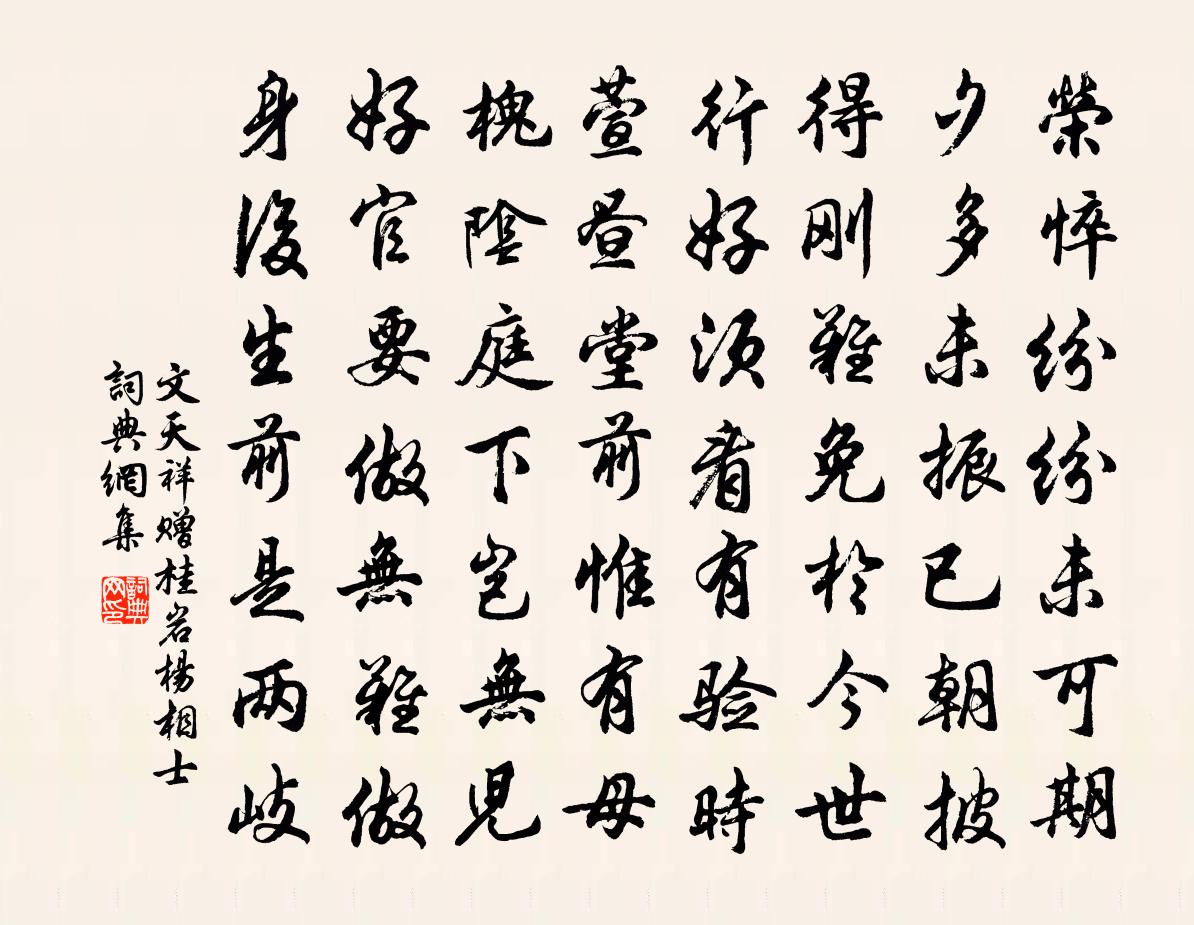 榮悴紛紛未可期
夕多未振已朝披
得刚難免於今世
行好须看有验時
萱昼堂前惟有母
槐陰庭下豈無児
好官要做無難做
身後生前是两岐
文天祥赠桂岩楊相士
詞典網集
詞典
网印